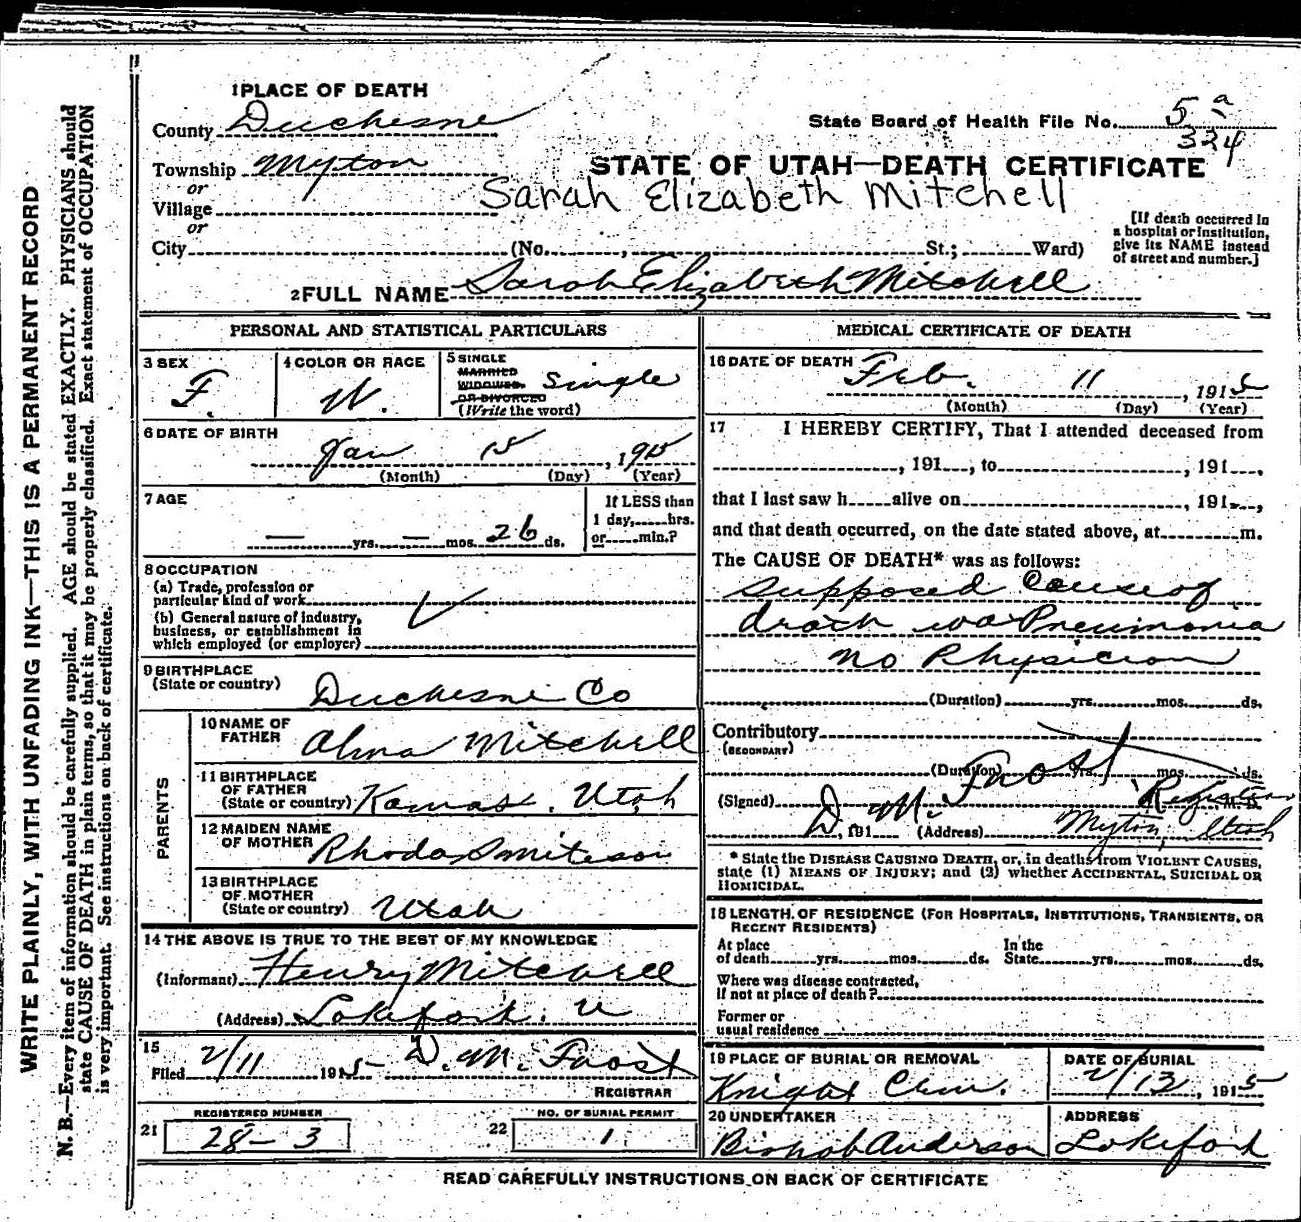 WRITE PLAINLY, WITH UNFADING INK—THIS IS A PERMANENT RECORD
N. B.—Every item of information should be carefully supplied. AGE should be stated EXACTLY. PHYSICIANS should
state CAUSE OF DEATH in plain terms, so that it may be properly classified. Exact statement of OCCUPATION
is very important. See instructions on back of certificate.
1 PLACE OF DEATH
County Duchesne
State Board of Health File No. 5 a
324
Township Myton
or
STATE OF UTAH—DEATH CERTIFICATE
Sarah Elizabeth Mitchell
Village
or
City (No. , St.; Ward)
[If death occurred in
a hospital or institution,
give its NAME instead
of street and number.]
2 FULL NAME Sarah Elizabeth Mitchell
PERSONAL AND STATISTICAL PARTICULARS
3 SEX
F.
4 COLOR OR RACE
W.
5 SINGLE
MARRIED
WIDOWED.
OR DIVORCED
(Write the word)
Single
6 DATE OF BIRTH
Jan 15, 1915
(Month) (Day) (Year)
7 AGE
— yrs. — mos. 26 ds.
If LESS than
1 day, hrs.
or min.?
8 OCCUPATION
(a) Trade, profession or
particular kind of work
(b) General nature of industry,
business, or establishment in
which employed (or employer)
9 BIRTHPLACE
(State or country)
Duchesne Co
PARENTS
10 NAME OF
FATHER
Alma Mitchell
11 BIRTHPLACE
OF FATHER
(State or country)
Kamas. Utah
12 MAIDEN NAME
OF MOTHER
Rhoda
13 BIRTHPLACE
OF MOTHER
(State or country)
Utah
14 THE ABOVE IS TRUE TO THE BEST OF MY KNOWLEDGE
(Informant) Henry Mitchell
(Address) Lakefork. U
15
Filed 2/11 1915 D. M. Frost
REGISTRAR
REGISTERED NUMBER
21 28—3
NO. OF BURIAL PERMIT
22 1
MEDICAL CERTIFICATE OF DEATH
16 DATE OF DEATH
Feb. 11, 1915
(Month) (Day) (Year)
17 I HEREBY CERTIFY, That I attended deceased from
, 191 , to , 191 ,
that I last saw h alive on , 191 ,
and that death occurred, on the date stated above, at m.
The CAUSE OF DEATH* was as follows:
Supposed Cause of
death was Pneumonia
no Physician
(Duration) yrs. mos. ds.
Contributory
(SECONDARY)
(Duration) yrs. mos. ds.
(Signed) D. M. Frost Registrar M. D.
, 191 (Address) Myton, Utah
* State the DISEASE CAUSING DEATH, or, in deaths from VIOLENT CAUSES,
state (1) MEANS OF INJURY; and (2) whether ACCIDENTAL, SUICIDAL OR
HOMICIDAL.
18 LENGTH OF RESIDENCE (FOR HOSPITALS, INSTITUTIONS, TRANSIENTS, OR
RECENT RESIDENTS)
At place
of death yrs. mos. ds.
In the
State yrs. mos. ds.
Where was disease contracted,
if not at place of death?
Former or
usual residence
19 PLACE OF BURIAL OR REMOVAL
Knight Cem.
DATE OF BURIAL
2/13, 1915
20 UNDERTAKER
Bishop Anderson
ADDRESS
Lakefork
READ CAREFULLY INSTRUCTIONS ON BACK OF CERTIFICATE